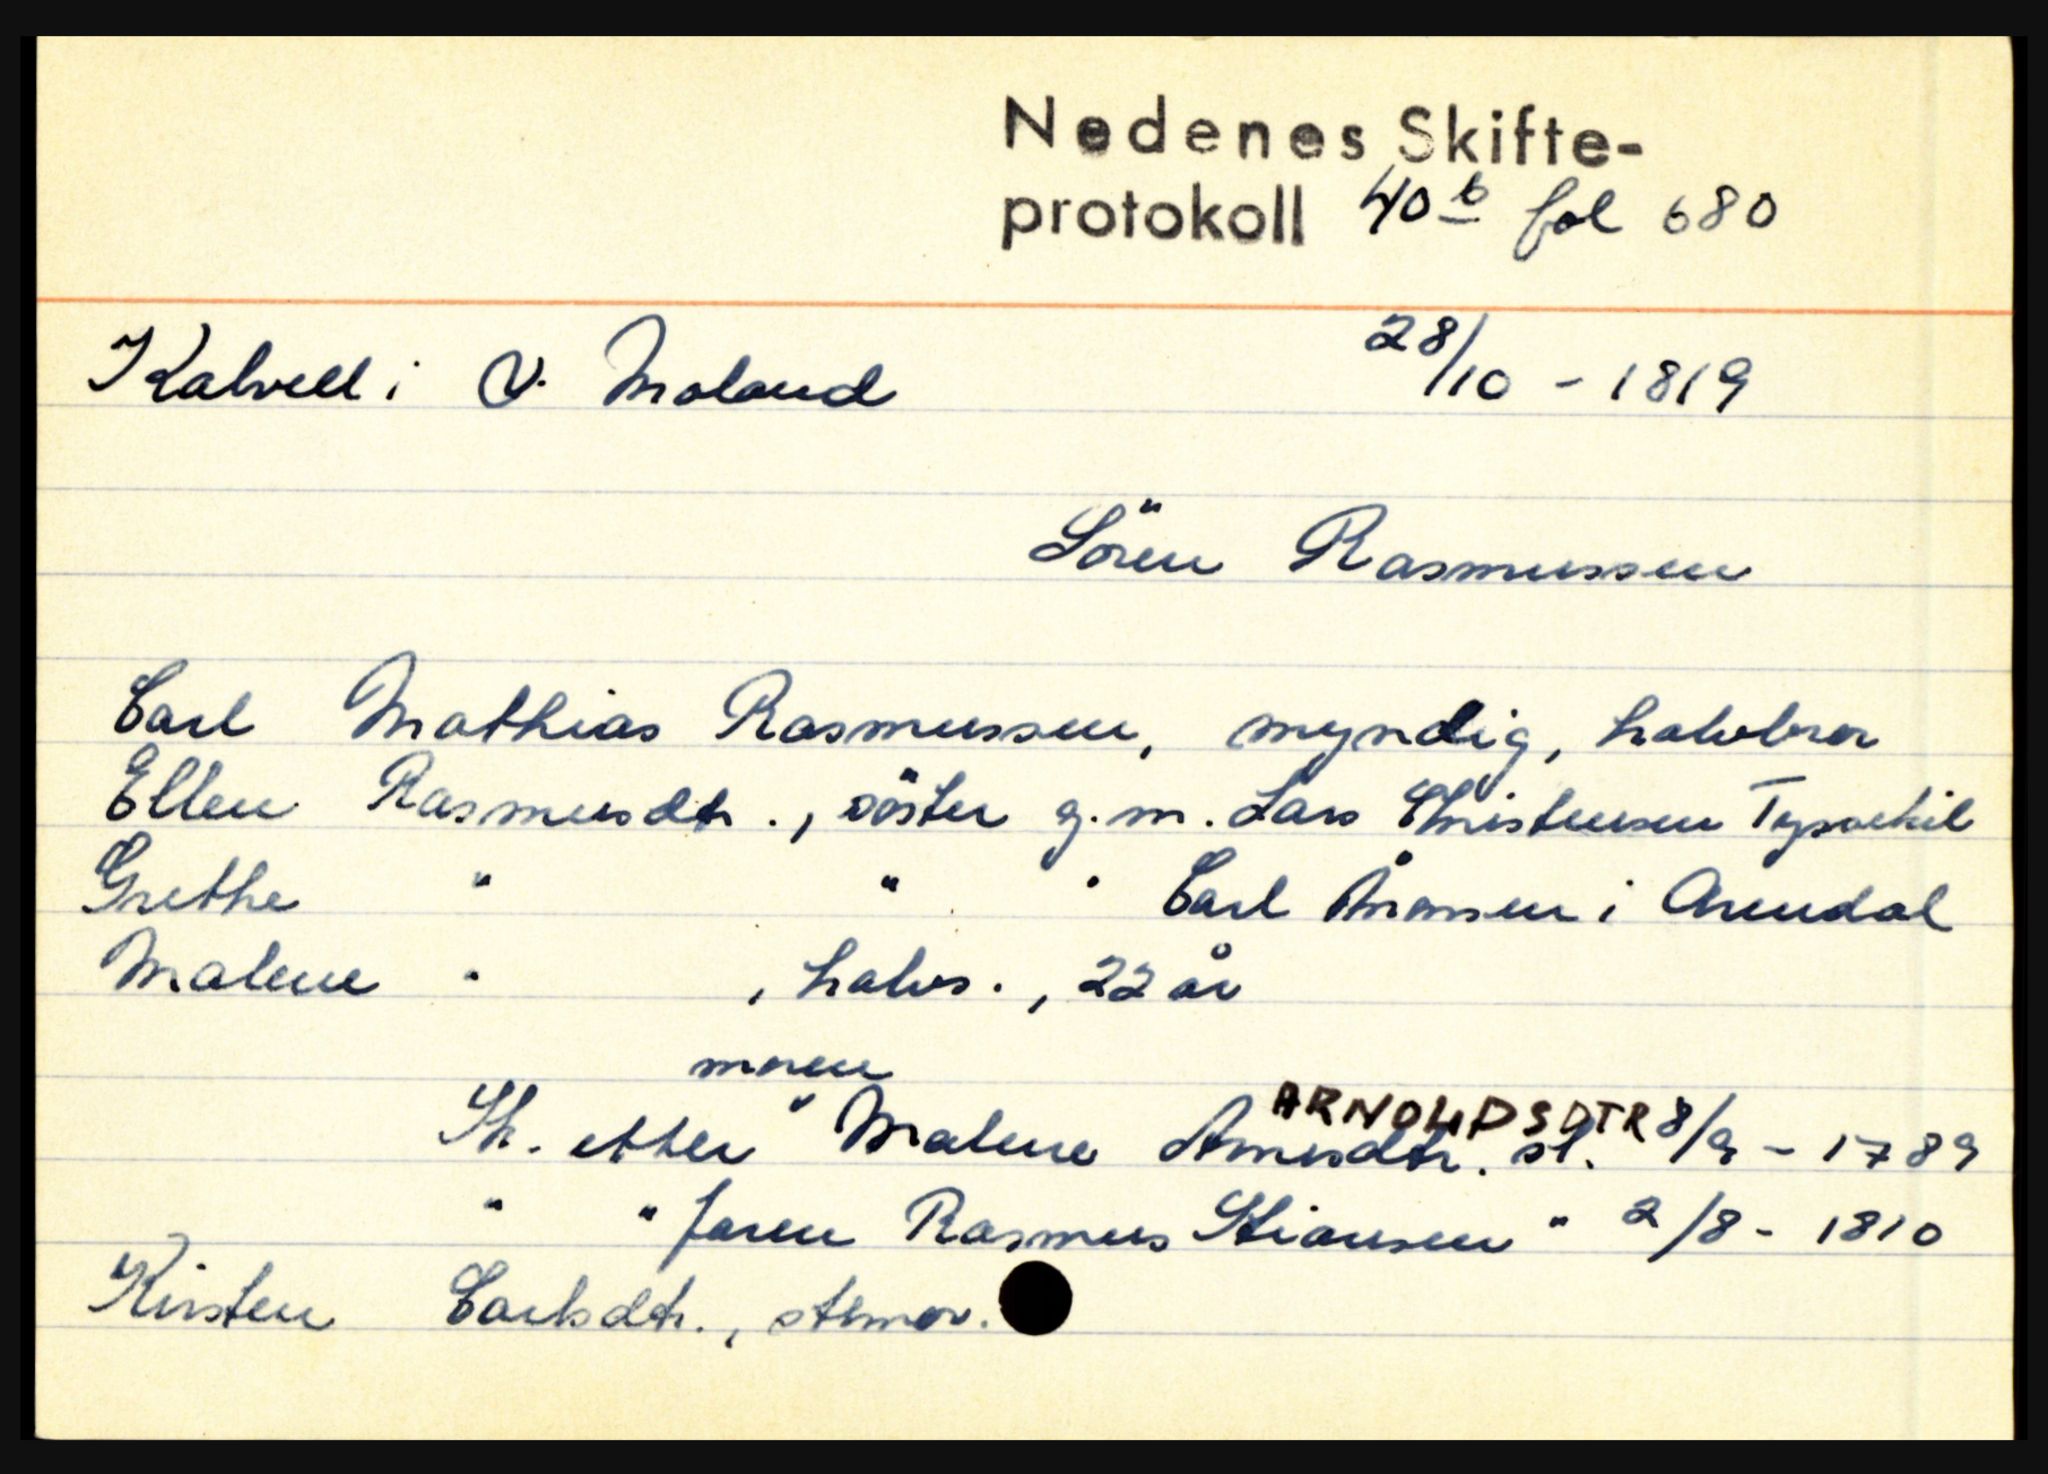 Nedenes Skifte-
protokoll 40 b fol 680
Kalvell i V. Moland 28/10 - 1819
Sören Rasmussen
Carl Mathias Rasmussen, myndig, halvbror
Ellen Rasmusdtr., söster g.m. Lars Christensen
Grethe " " " Carl Ånonsen i Arendal
Malene " , halvs., 22 år
moren
Sk. etter Malene ARNOLDSDTR st. 8/9 - 1789
" " faren Rasmus Stiansen " 2/8 - 1810
Kirsten Carlsdtr., stemor.